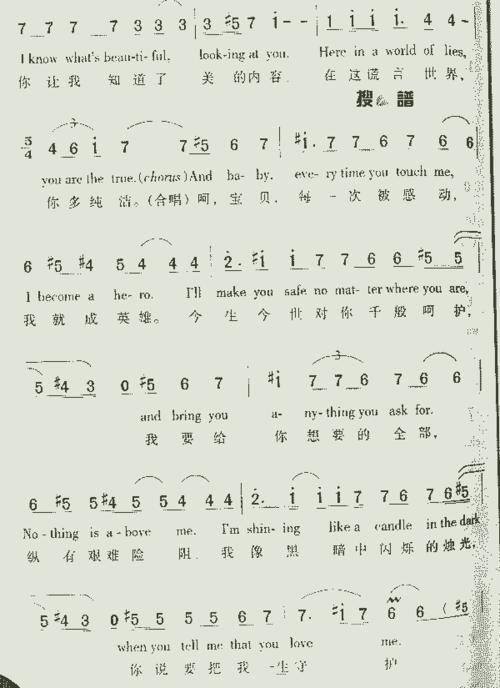 7 7 7 7 3 3 3 | 3 #5 7 i - - | 1 i i i. 4 4 -
I know what's beau-ti-ful, look-ing at you. Here in a world of lies,
你 让 我 知 道 了 美 的 内 容. 在 这 谎 言 世 界,
搜 谱
5/4 4 6 i 7 7 #5 6 7 | #i. 7 7 6 7 6 6
you are the true. (chorus) And ba-by. eve-ry time you touch me,
你 多 纯 洁。(合唱) 呵, 宝 贝. 每 一 次 被 感 动,
6 #5 #4 5 4 4 4 | 2. #i i 7 7 6 6 #5 5
I become a he-ro. I'll make you safe no mat-ter where you are,
我 就 成 英 雄。 今 生 今 世 对 你 千 般 呵 护,
5 #4 3 0 #5 6 7 | #i 7 7 6 7 6 6
and bring you a-ny-thing you ask for.
我 要 给 你 想 要 的 全 部,
6 #5 5 #4 5 5 4 4 4 | 2. i i i 7 7 6 7 6 #5
No-thing is a-bove me. I'm shin-ing like a candle in the dark
纵 有 艰 难 险 阻. 我 像 黑 暗 中 闪 烁 的 烛 光,
5 #4 3 0 #5 5 5 5 6 7 | 7. #i 7 6 6 ( #5
when you tell me that you love me.
你 说 要 把 我 一 生 守 护